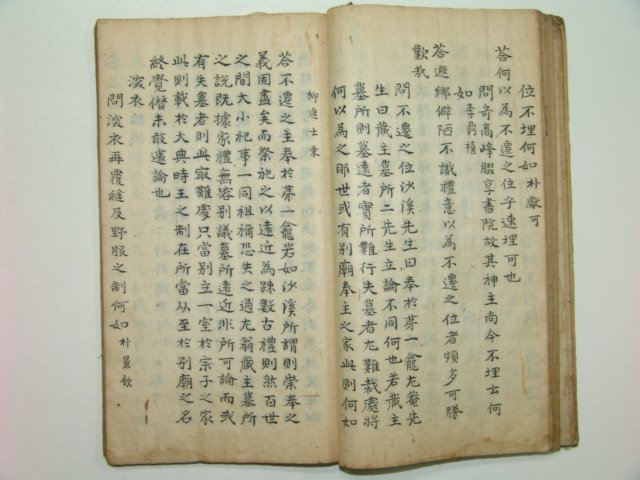 位不埋何如 朴獻可
答何以為不遷之位乎速埋可也
問奇高峰腏享書院故其神主尚今不埋云何
如 李鼎禧
答遐鄉僻陋不識禮意以為不遷之位者頻多可勝
歎哉
問不遷之位沙溪先生曰奉於第一龕尤菴先
生曰藏主墓所二先生立論不同何也若藏主
墓所則墓遠者實所難行失墓者尤難裁處將
何以為之耶世或有別廟奉主之家此則何如
柳進士
答不遷之主奉於第一龕若如沙溪所謂則崇奉之
義固盡矣而祭祀之以遠近為疎數古禮則然百世
之間大小祀事一同祖禰恐失之過尤翁藏主墓所
之說既據家禮無容別議墓所遠近非所可論而或
有失墓者則此最難處只當別立一室於宗子之家
此則載於大典時王之制在所當從至於別廟之名
終覺僭未敢遽論也
深衣
問深衣再覆縫及野服之制何如 朴景欽